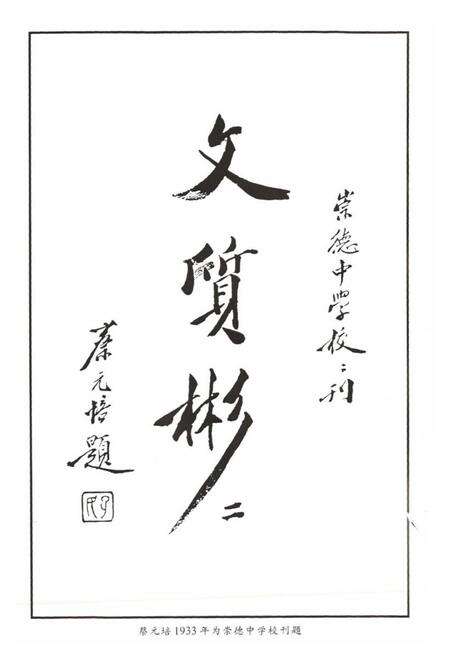 崇德中學校〻刊
文質彬〻
蔡元培題
蔡元培1933年为崇德中学校刊题